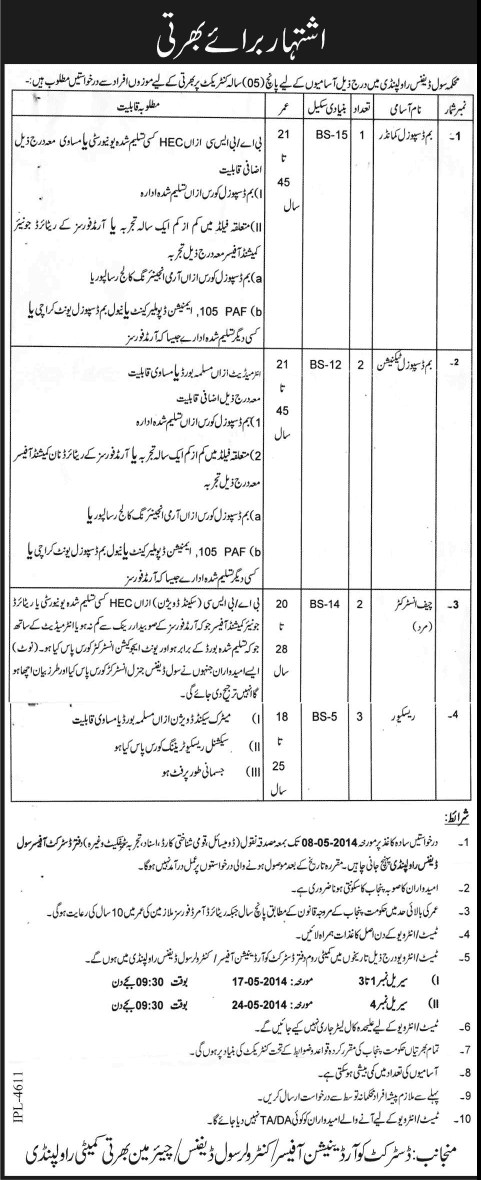 اشتہار برائے بھرتی
محکمہ سول ڈیفنس راولپنڈی میں درج ذیل آسامیوں کے لیے پانچ (05) سالہ کنٹریکٹ پر بھرتی کے لیے موزوں افراد سے درخواستیں مطلوب ہیں:-
نمبر شمار نام آسامی تعداد بنیادی سکیل عمر مطلوبہ قابلیت
1- بم ڈسپوزل کمانڈر 1 BS-15 21 تا 45 سال
بی اے/بی ایس سی ازاں HEC کسی تسلیم شدہ یونیورسٹی یا مساوی معہ درج ذیل
اضافی قابلیت
I) بم ڈسپوزل کورس ازاں تسلیم شدہ ادارہ
II) متعلقہ فیلڈ میں کم از کم ایک سالہ تجربہ یا آرمڈ فورسز کے ریٹائرڈ جونیئر
کمیشنڈ آفیسر معہ درج ذیل تجربہ
a) بم ڈسپوزل کورس ازاں آرمی انجینئرنگ کالج رسالپور یا
b) 105 PAF, ایمنیشن ڈپو ملیر کینٹ یا نیول بم ڈسپوزل یونٹ کراچی یا
کسی دیگر تسلیم شدہ ادارے جیسا کہ آرمڈ فورسز
2- بم ڈسپوزل ٹیکنیشن 2 BS-12 21 تا 45 سال
انٹرمیڈیٹ ازاں مسلمہ بورڈ یا مساوی قابلیت
معہ درج ذیل اضافی قابلیت
1) بم ڈسپوزل کورس ازاں تسلیم شدہ ادارہ
2) متعلقہ فیلڈ میں کم از کم ایک سالہ تجربہ یا آرمڈ فورسز کے ریٹائرڈ نان کمیشنڈ آفیسر
معہ درج ذیل تجربہ
a) بم ڈسپوزل کورس ازاں آرمی انجینئرنگ کالج رسالپور یا
b) 105 PAF, ایمنیشن ڈپو ملیر کینٹ یا نیول بم ڈسپوزل یونٹ کراچی یا
کسی دیگر تسلیم شدہ ادارے جیسا کہ آرمڈ فورسز
3- چیف انسٹرکٹر (مرد) 2 BS-14 20 تا 28 سال
بی اے/بی ایس سی (سیکنڈ ڈویژن) ازاں HEC کسی تسلیم شدہ یونیورسٹی یا ریٹائرڈ
جونیئر کمیشنڈ آفیسر جو کہ آرمڈ فورسز کے صوبیدار رینک سے کم نہ ہو یا انٹرمیڈیٹ کے ساتھ
جو کہ تسلیم شدہ بورڈ کے برابر ہو اور یونٹ ایجوکیشن انسٹرکٹر کورس پاس کیا ہو۔ (نوٹ)
ایسے امیدواران جنہوں نے سول ڈیفنس جنرل انسٹرکٹرز کورس پاس کیا اور طرز بیان اچھا ہو
گا انہیں ترجیح دی جائے گی۔
4- ریسکیور 3 BS-5 18 تا 25 سال
I) میٹرک سیکنڈ ڈویژن ازاں مسلمہ بورڈ یا مساوی قابلیت
II) سیکشنل ریسکیو ٹریننگ کورس پاس کیا ہو
III) جسمانی طور پر فٹ ہو
شرائط:
1- درخواستیں سادہ کاغذ پر مورخہ 08-05-2014 تک بمعہ مصدقہ نقول (ڈومیسائل، قومی شناختی کارڈ، اسناد، تجربہ سرٹیفکیٹ وغیرہ) دفتر ڈسٹرکٹ آفیسر سول
ڈیفنس راولپنڈی پہنچ جانی چاہیں۔ مقررہ تاریخ کے بعد موصول ہونے والی درخواستوں پر عمل درآمد نہیں ہو گا۔
2- امیدواران کا صوبہ پنجاب کا سکونتی ہونا ضروری ہے۔
3- عمر کی بالائی حد میں حکومت پنجاب کے مروجہ قانون کے مطابق پانچ سال جبکہ ریٹائرڈ آرمڈ فورسز ملازمین کی عمر میں 10 سال کی رعایت ہو گی۔
4- ٹیسٹ/انٹرویو کے دن اصل کاغذات ہمراہ لائیں۔
5- ٹیسٹ/انٹرویو درج ذیل تاریخوں میں کمیٹی روم دفتر ڈسٹرکٹ کوآرڈینیشن آفیسر/کنٹرولر سول ڈیفنس راولپنڈی میں ہوں گے۔
I) سیریل نمبر 1 تا 3 مورخہ: 17-05-2014 بوقت 09:30 بجے دن
II) سیریل نمبر 4 مورخہ: 24-05-2014 بوقت 09:30 بجے دن
6- ٹیسٹ/انٹرویو کے لیے علیحدہ کال لیٹر جاری نہیں کیے جائیں گے۔
7- تمام بھرتیاں حکومت پنجاب کی مقرر کردہ قواعد و ضوابط کے تحت کنٹریکٹ کی بنیاد پر ہوں گی۔
8- آسامیوں کی تعداد میں کمی بیشی ہو سکتی ہے۔
9- پہلے سے ملازم پیشہ افراد محکمانہ توسط سے درخواست ارسال کریں۔
10- ٹیسٹ/انٹرویو کے لیے آنے والے امیدواران کو کوئی TA/DA نہیں دیا جائے گا۔
منجانب: ڈسٹرکٹ کوآرڈینیشن آفیسر/کنٹرولر سول ڈیفنس/چیئرمین بھرتی کمیٹی راولپنڈی
IPL-4611